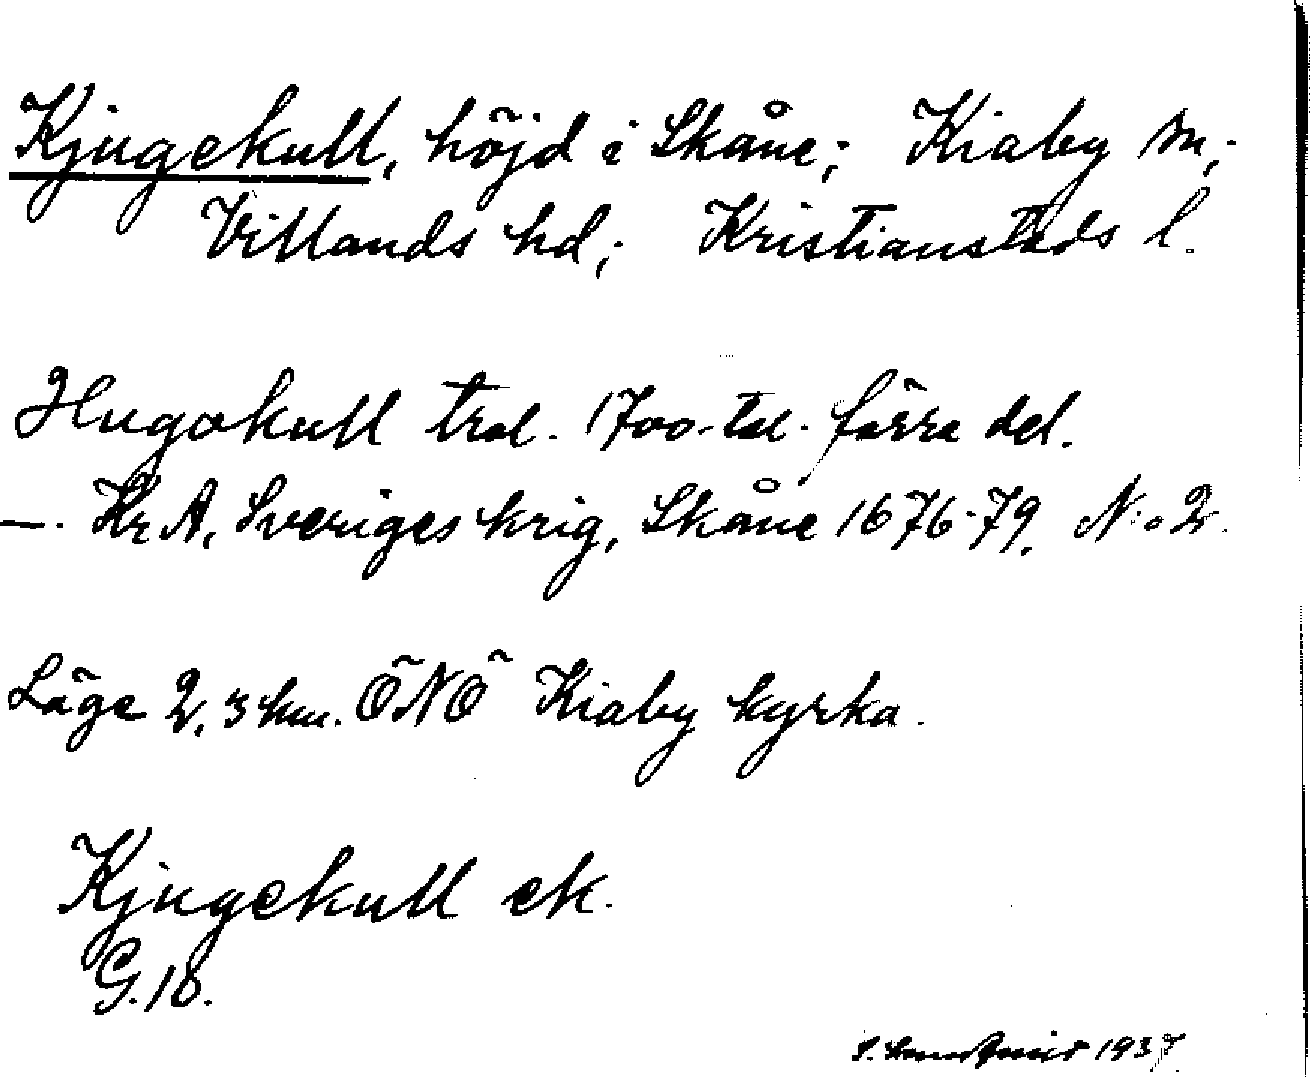 Kjugekull, höjd i Skåne; Kiaby sn;
Villands hd; Kristianstads l.
Hugokull trol. 1700-tal. förra del.
—. Kr A, Sveriges krig, Skåne 1676-79. N:o 2.
Läge 2,3 km. ÖNÖ Kiaby kyrka.
Kjugekull ek.
G. 10.
1937